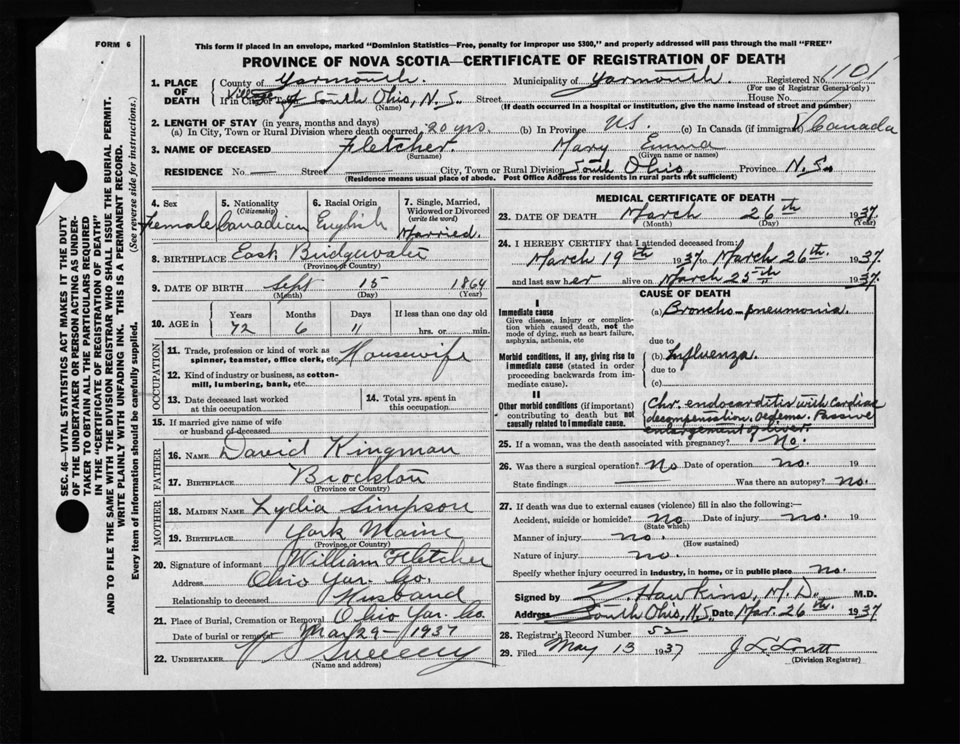 FORM 6
This form if placed in an envelope, marked "Dominion Statistics—Free, penalty for improper use $300," and properly addressed will pass through the mail "FREE"
PROVINCE OF NOVA SCOTIA—CERTIFICATE OF REGISTRATION OF DEATH
1. PLACE OF DEATH County of Yarmouth. Municipality of Yarmouth. Registered No. 1101
(For use of Registrar General only)
Village If in City or Town of South Ohio, N.S. Street House No.
(Name) (If death occurred in a hospital or institution, give the name instead of street and number)
2. LENGTH OF STAY (in years, months and days)
(a) In City, Town or Rural Division where death occurred 20 yrs. (b) In Province (c) In Canada (if immigrant) Canada
3. NAME OF DECEASED Fletcher. Mary Emma
(Surname) (Given name or names)
RESIDENCE No. — Street — City, Town or Rural Division South Ohio, Province N.S.
(Residence means usual place of abode. Post Office Address for residents in rural parts not sufficient)
SEC. 46—VITAL STATISTICS ACT MAKES IT THE DUTY
OF THE UNDERTAKER OR PERSON ACTING AS UNDER-
TAKER TO OBTAIN ALL THE PARTICULARS REQUIRED
IN THE "CERTIFICATE OF REGISTRATION OF DEATH"
AND TO FILE THE SAME WITH THE DIVISION REGISTRAR WHO SHALL ISSUE THE BURIAL PERMIT.
WRITE PLAINLY WITH UNFADING INK. THIS IS A PERMANENT RECORD.
Every item of information should be carefully supplied. (See reverse side for instructions.)
4. Sex 5. Nationality (Citizenship) 6. Racial Origin 7. Single, Married, Widowed or Divorced (write the word)
Female Canadian English Married.
8. BIRTHPLACE East Bridgewater
(Province or Country)
9. DATE OF BIRTH Sept 15 1864
(Month) (Day) (Year)
10. AGE in Years Months Days If less than one day old
72 6 11 hrs. or min.
OCCUPATION
11. Trade, profession or kind of work as spinner, teamster, office clerk, etc. Housewife
12. Kind of industry or business, as cotton-mill, lumbering, bank, etc.
13. Date deceased last worked at this occupation
14. Total yrs. spent in this occupation.
15. If married give name of wife or husband of deceased
FATHER
16. NAME David Kingman
17. BIRTHPLACE Brockton
(Province or Country)
MOTHER
18. MAIDEN NAME Lydia Simpson
19. BIRTHPLACE York Maine
(Province or Country)
20. Signature of informant William Fletcher
Address Ohio Yar. Co.
Relationship to deceased Husband
21. Place of Burial, Cremation or Removal Ohio Yar. Co.
Date of burial or removal Mar 29 - 1937
22. UNDERTAKER Sweeny
(Name and address)
MEDICAL CERTIFICATE OF DEATH
23. DATE OF DEATH March 26th 1937.
(Month) (Day) (Year)
24. I HEREBY CERTIFY that I attended deceased from:
March 19th 1937 to March 26th. 1937.
and last saw her alive on March 25th 1937.
CAUSE OF DEATH
I
Immediate cause
Give disease, injury or complication which caused death, not the mode of dying, such as heart failure, asphyxia, asthenia, etc
(a) Broncho-pneumonia.
due to
Morbid conditions, if any, giving rise to immediate cause (stated in order proceeding backwards from immediate cause).
(b) Influenza.
due to
(c)
II
Other morbid conditions (if important) contributing to death but not causally related to immediate cause.
Chr. endocarditis with Cardiac
decompensation. Oedema. Passive
enlargement of liver.
25. If a woman, was the death associated with pregnancy? No.
26. Was there a surgical operation? No Date of operation no. 19
State findings — Was there an autopsy? no.
27. If death was due to external causes (violence) fill in also the following:—
Accident, suicide or homicide? no Date of injury no. 19
(State which)
Manner of injury no.
(How sustained)
Nature of injury no.
Specify whether injury occurred in industry, in home, or in public place no.
Signed by Z. Hawkins, M.D. M.D.
Address South Ohio, N.S. Date Mar. 26th. 1937
28. Registrar's Record Number 52
29. Filed May 13 1937
(Division Registrar)